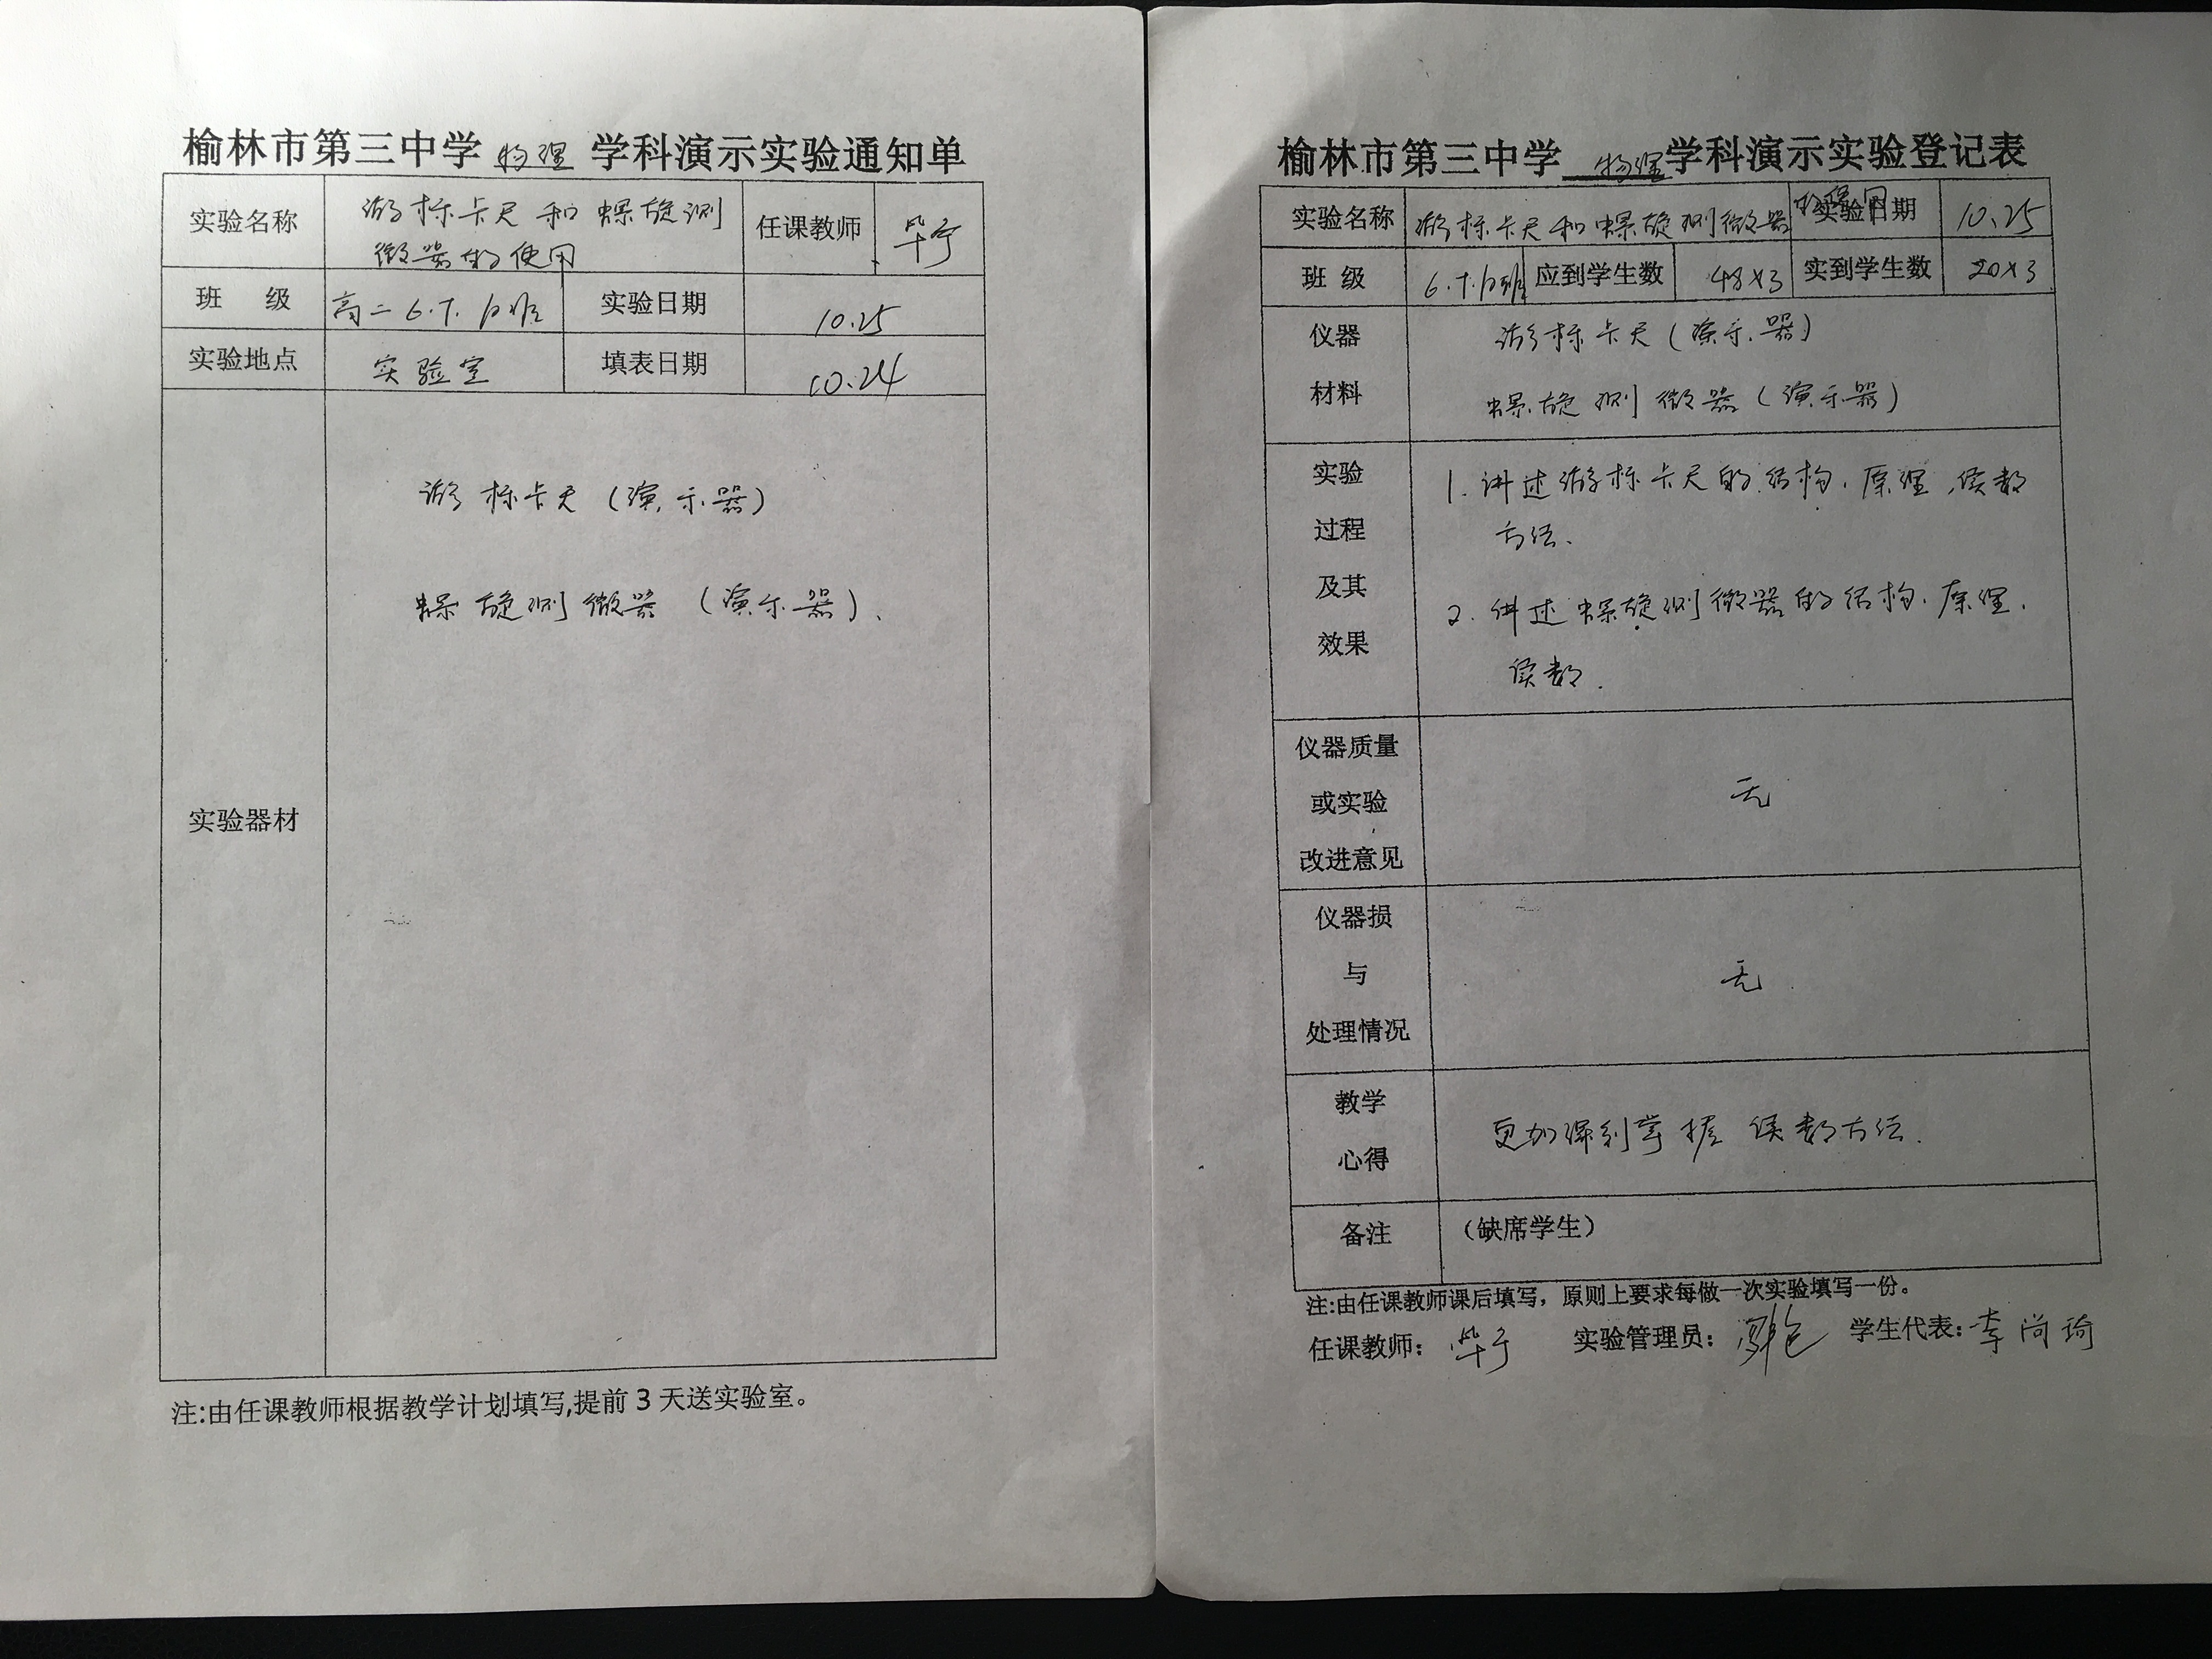 榆林市第三中学 物理 学科演示实验通知单
实验名称 游标卡尺和螺旋测
微器的使用 任课教师 毕宁
班 级 高二6.7.10班 实验日期 10.25
实验地点 实验室 填表日期 10.24
实验器材
游标卡尺(演示器)
螺旋测微器(演示器).
注:由任课教师根据教学计划填写,提前3天送实验室。
榆林市第三中学 物理 学科演示实验登记表
实验名称 游标卡尺和螺旋测微器的使用 实验日期 10.25
班 级 6.7.10班 应到学生数 48×3 实到学生数 20×3
仪器
材料
游标卡尺(演示器)
螺旋测微器(演示器)
实验
过程
及其
效果
1. 讲述游标卡尺的结构.原理,读数
方法.
2. 讲述螺旋测微器的结构.原理.
读数.
仪器质量
或实验
改进意见
无
仪器损
与
处理情况
无
教学
心得
更加深刻掌握读数方法.
备注 (缺席学生)
注:由任课教师课后填写,原则上要求每做一次实验填写一份。
任课教师: 毕宁 实验管理员: 学生代表: 李尚琦